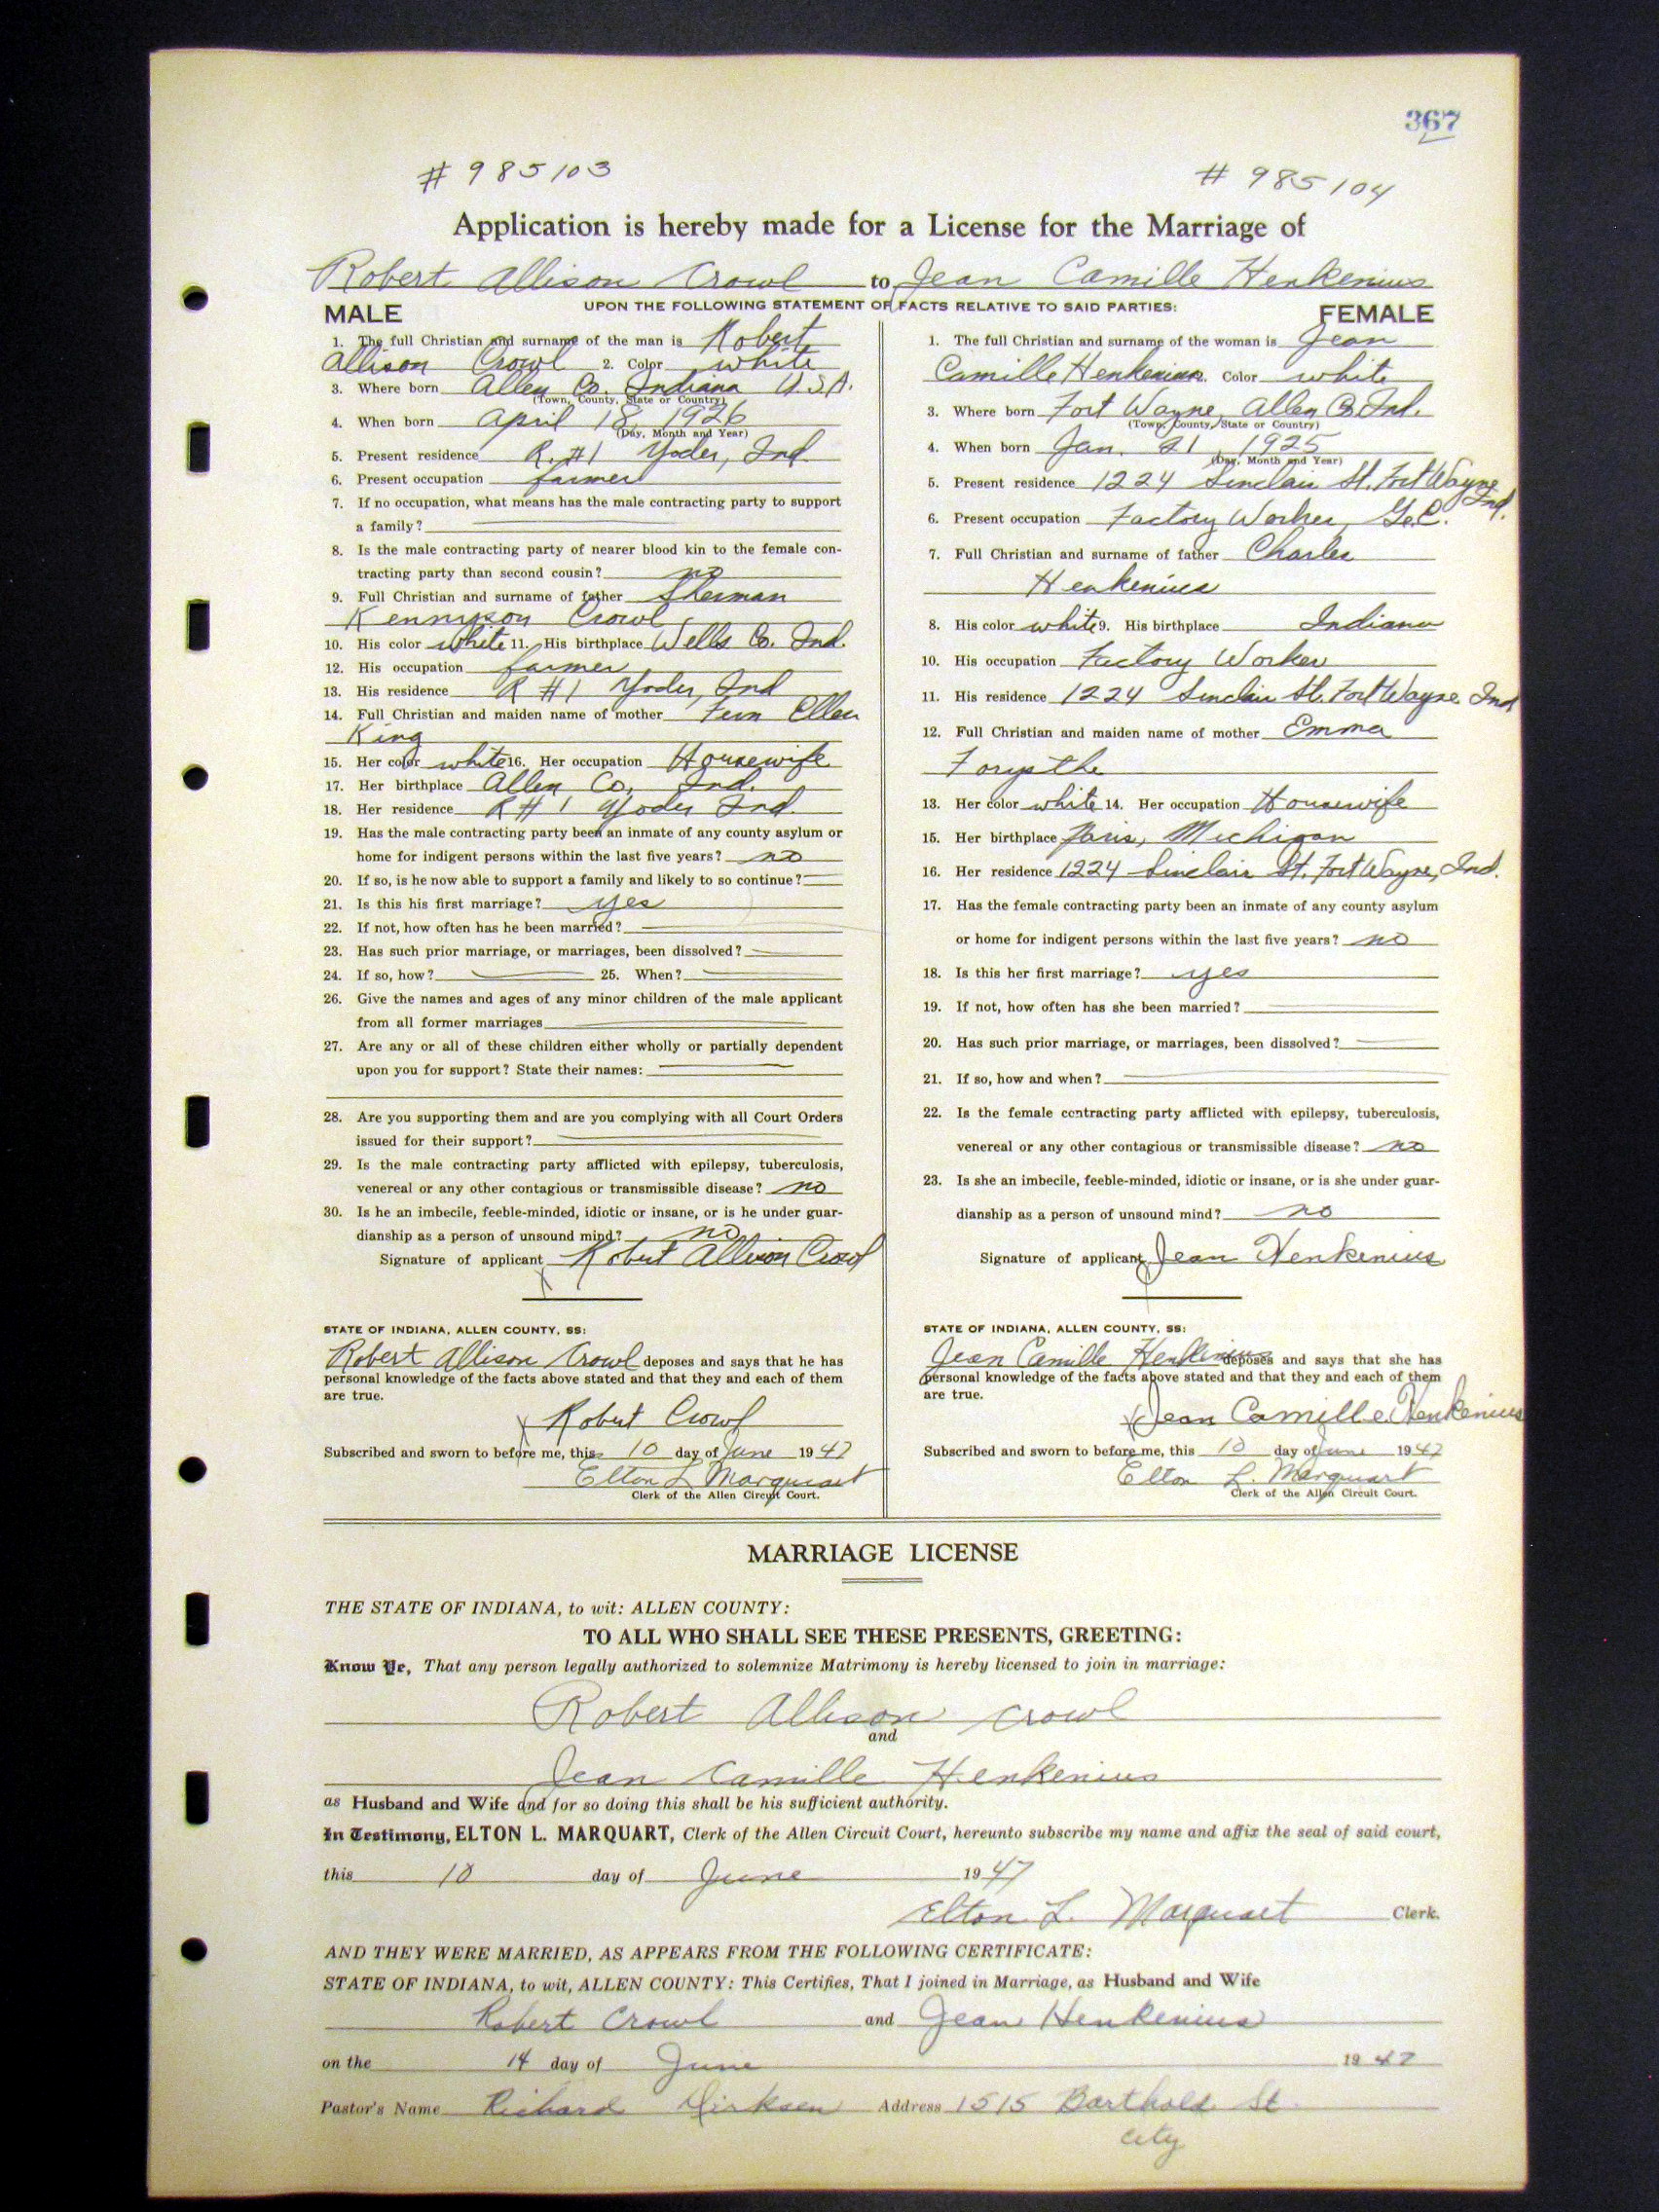 367
# 985103 # 985104
Application is hereby made for a License for the Marriage of
Robert Allison Crowl to Jean Camille Henkenius
UPON THE FOLLOWING STATEMENT OF FACTS RELATIVE TO SAID PARTIES:
MALE
1. The full Christian and surname of the man is Robert
Allison Crowl 2. Color white
3. Where born Allen Co. Indiana U.S.A.
(Town, County, State or Country)
4. When born April 18, 1926
(Day, Month and Year)
5. Present residence R. #1 Yoder, Ind
6. Present occupation farmer
7. If no occupation, what means has the male contracting party to support
a family?
8. Is the male contracting party of nearer blood kin to the female con-
tracting party than second cousin? no
9. Full Christian and surname of father Sherman
Crowl
10. His color white 11. His birthplace Wells Co. Ind.
12. His occupation farmer
13. His residence R #1 Yoder, Ind
14. Full Christian and maiden name of mother Fern Ellen
King
15. Her color white 16. Her occupation Housewife
17. Her birthplace Allen Co. Ind.
18. Her residence R #1 Yoder Ind.
19. Has the male contracting party been an inmate of any county asylum or
home for indigent persons within the last five years? no
20. If so, is he now able to support a family and likely to so continue?
21. Is this his first marriage? yes
22. If not, how often has he been married?
23. Has such prior marriage, or marriages, been dissolved?
24. If so, how? 25. When?
26. Give the names and ages of any minor children of the male applicant
from all former marriages
27. Are any or all of these children either wholly or partially dependent
upon you for support? State their names:
28. Are you supporting them and are you complying with all Court Orders
issued for their support?
29. Is the male contracting party afflicted with epilepsy, tuberculosis,
venereal or any other contagious or transmissible disease? no
30. Is he an imbecile, feeble-minded, idiotic or insane, or is he under guar-
dianship as a person of unsound mind? no
Signature of applicant Robert Allison Crowl
STATE OF INDIANA, ALLEN COUNTY, SS:
Robert Allison Crowl deposes and says that he has
personal knowledge of the facts above stated and that they and each of them
are true.
Robert Crowl
Subscribed and sworn to before me, this 10 day of June 1947
Elton L Marquart
Clerk of the Allen Circuit Court.
FEMALE
1. The full Christian and surname of the woman is Jean
Camille Henkenius. Color white
3. Where born Fort Wayne, Allen Co. Ind.
(Town, County, State or Country)
4. When born Jan. 21, 1925
(Day, Month and Year)
5. Present residence 1224 Sinclair St. Fort Wayne Ind.
6. Present occupation Factory Worker, G.E.
7. Full Christian and surname of father Charles
Henkenius
8. His color white 9. His birthplace Indiana
10. His occupation Factory Worker
11. His residence 1224 Sinclair St. Fort Wayne Ind
12. Full Christian and maiden name of mother Emma
Forsythe
13. Her color white 14. Her occupation Housewife
15. Her birthplace Paris, Michigan
16. Her residence 1224 Sinclair St. Fort Wayne, Ind.
17. Has the female contracting party been an inmate of any county asylum
or home for indigent persons within the last five years? no
18. Is this her first marriage? yes
19. If not, how often has she been married?
20. Has such prior marriage, or marriages, been dissolved?
21. If so, how and when?
22. Is the female contracting party afflicted with epilepsy, tuberculosis,
venereal or any other contagious or transmissible disease? no
23. Is she an imbecile, feeble-minded, idiotic or insane, or is she under guar-
dianship as a person of unsound mind? no
Signature of applicant Jean Henkenius
STATE OF INDIANA, ALLEN COUNTY, SS:
Jean Camille Henkenius deposes and says that she has
personal knowledge of the facts above stated and that they and each of them
are true.
Jean Camille Henkenius
Subscribed and sworn to before me, this 10 day of June 1947
Elton L. Marquart
Clerk of the Allen Circuit Court.
MARRIAGE LICENSE
THE STATE OF INDIANA, to wit: ALLEN COUNTY:
TO ALL WHO SHALL SEE THESE PRESENTS, GREETING:
Know Ye, That any person legally authorized to solemnize Matrimony is hereby licensed to join in marriage:
Robert Allison Crowl
and
Jean Camille Henkenius
as Husband and Wife and for so doing this shall be his sufficient authority.
In Testimony, ELTON L. MARQUART, Clerk of the Allen Circuit Court, hereunto subscribe my name and affix the seal of said court,
this 10 day of June 1947
Elton L. Marquart Clerk.
AND THEY WERE MARRIED, AS APPEARS FROM THE FOLLOWING CERTIFICATE:
STATE OF INDIANA, to wit, ALLEN COUNTY: This Certifies, That I joined in Marriage, as Husband and Wife
Robert Crowl and Jean Henkenius
on the 14 day of June 1947
Pastor's Name Richard Dirksen Address 1515 Barthold St.
City